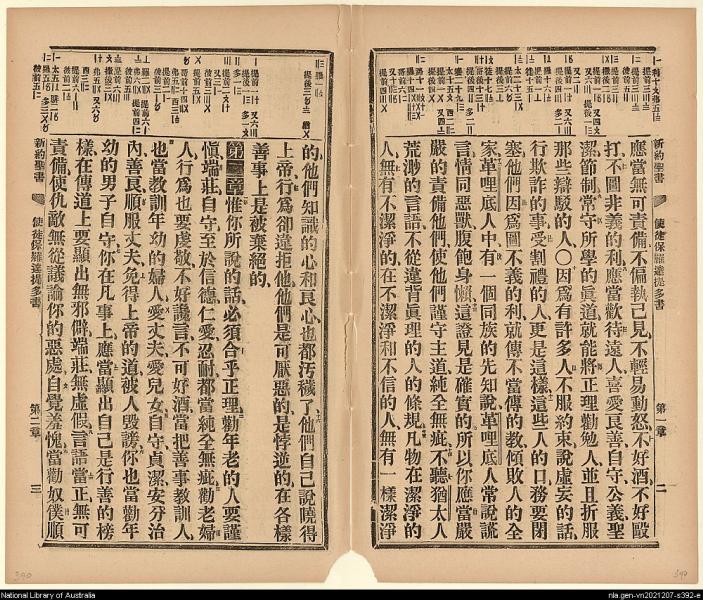 應當無可責備不偏執己見不輕易動怒不好酒不好毆
打不圖非義的利應當歡待遠人喜愛良善自守公義聖
潔節制常守所學的眞道就能將正理勸勉人並且折服
那些辯駁的人〇因爲有許多人不服約束說虛妄的話
行欺詐的事受割禮的人更是這樣這些人的口務要閉
塞他們因爲圖不義的利就傳不當傳的教傾敗人的全
家革哩底人中有一個同族的先知說革哩底人常說謊
言情同惡獸腹飽身懶這證見是確實的所以你應當嚴
嚴的責備他們使他們謹守主道純全無疵不聽猶太人
荒渺的言語不從違背眞理的人的條規凡物在潔淨的
人無有不潔淨的在不潔淨和不信的人無有一樣潔淨
新約聖書
使徒保羅達提多書
第一章
二
的他們知識的心和良心也都汚穢了他們自己說曉得
上帝行爲卻違拒他他們是可厭惡的是悖逆的在各樣
善事上是被棄絕的
第二章惟你所說的話必須合乎正理勸年老的人要謹
愼端莊自守至於信德仁愛忍耐都當純全無疵勸老婦
人行爲也要虔敬不好讒言不可好酒當把善事教訓人
也當教訓年幼的婦人愛丈夫愛兒女自守貞潔安分治
內善良順服丈夫免得上帝的道被人毀謗你也當勸年
幼的男子自守你在凡事上應當顯出自己是行善的榜
樣在傳道上要顯出無邪僻端莊無虛假言語當正無可
責備使仇敵無從議論你的惡處自覺羞愧當勸奴僕順
新約聖書
使徒保羅達提多書
第二章
三
National Library of Australia
nla.gen-vn2021207-s392-e